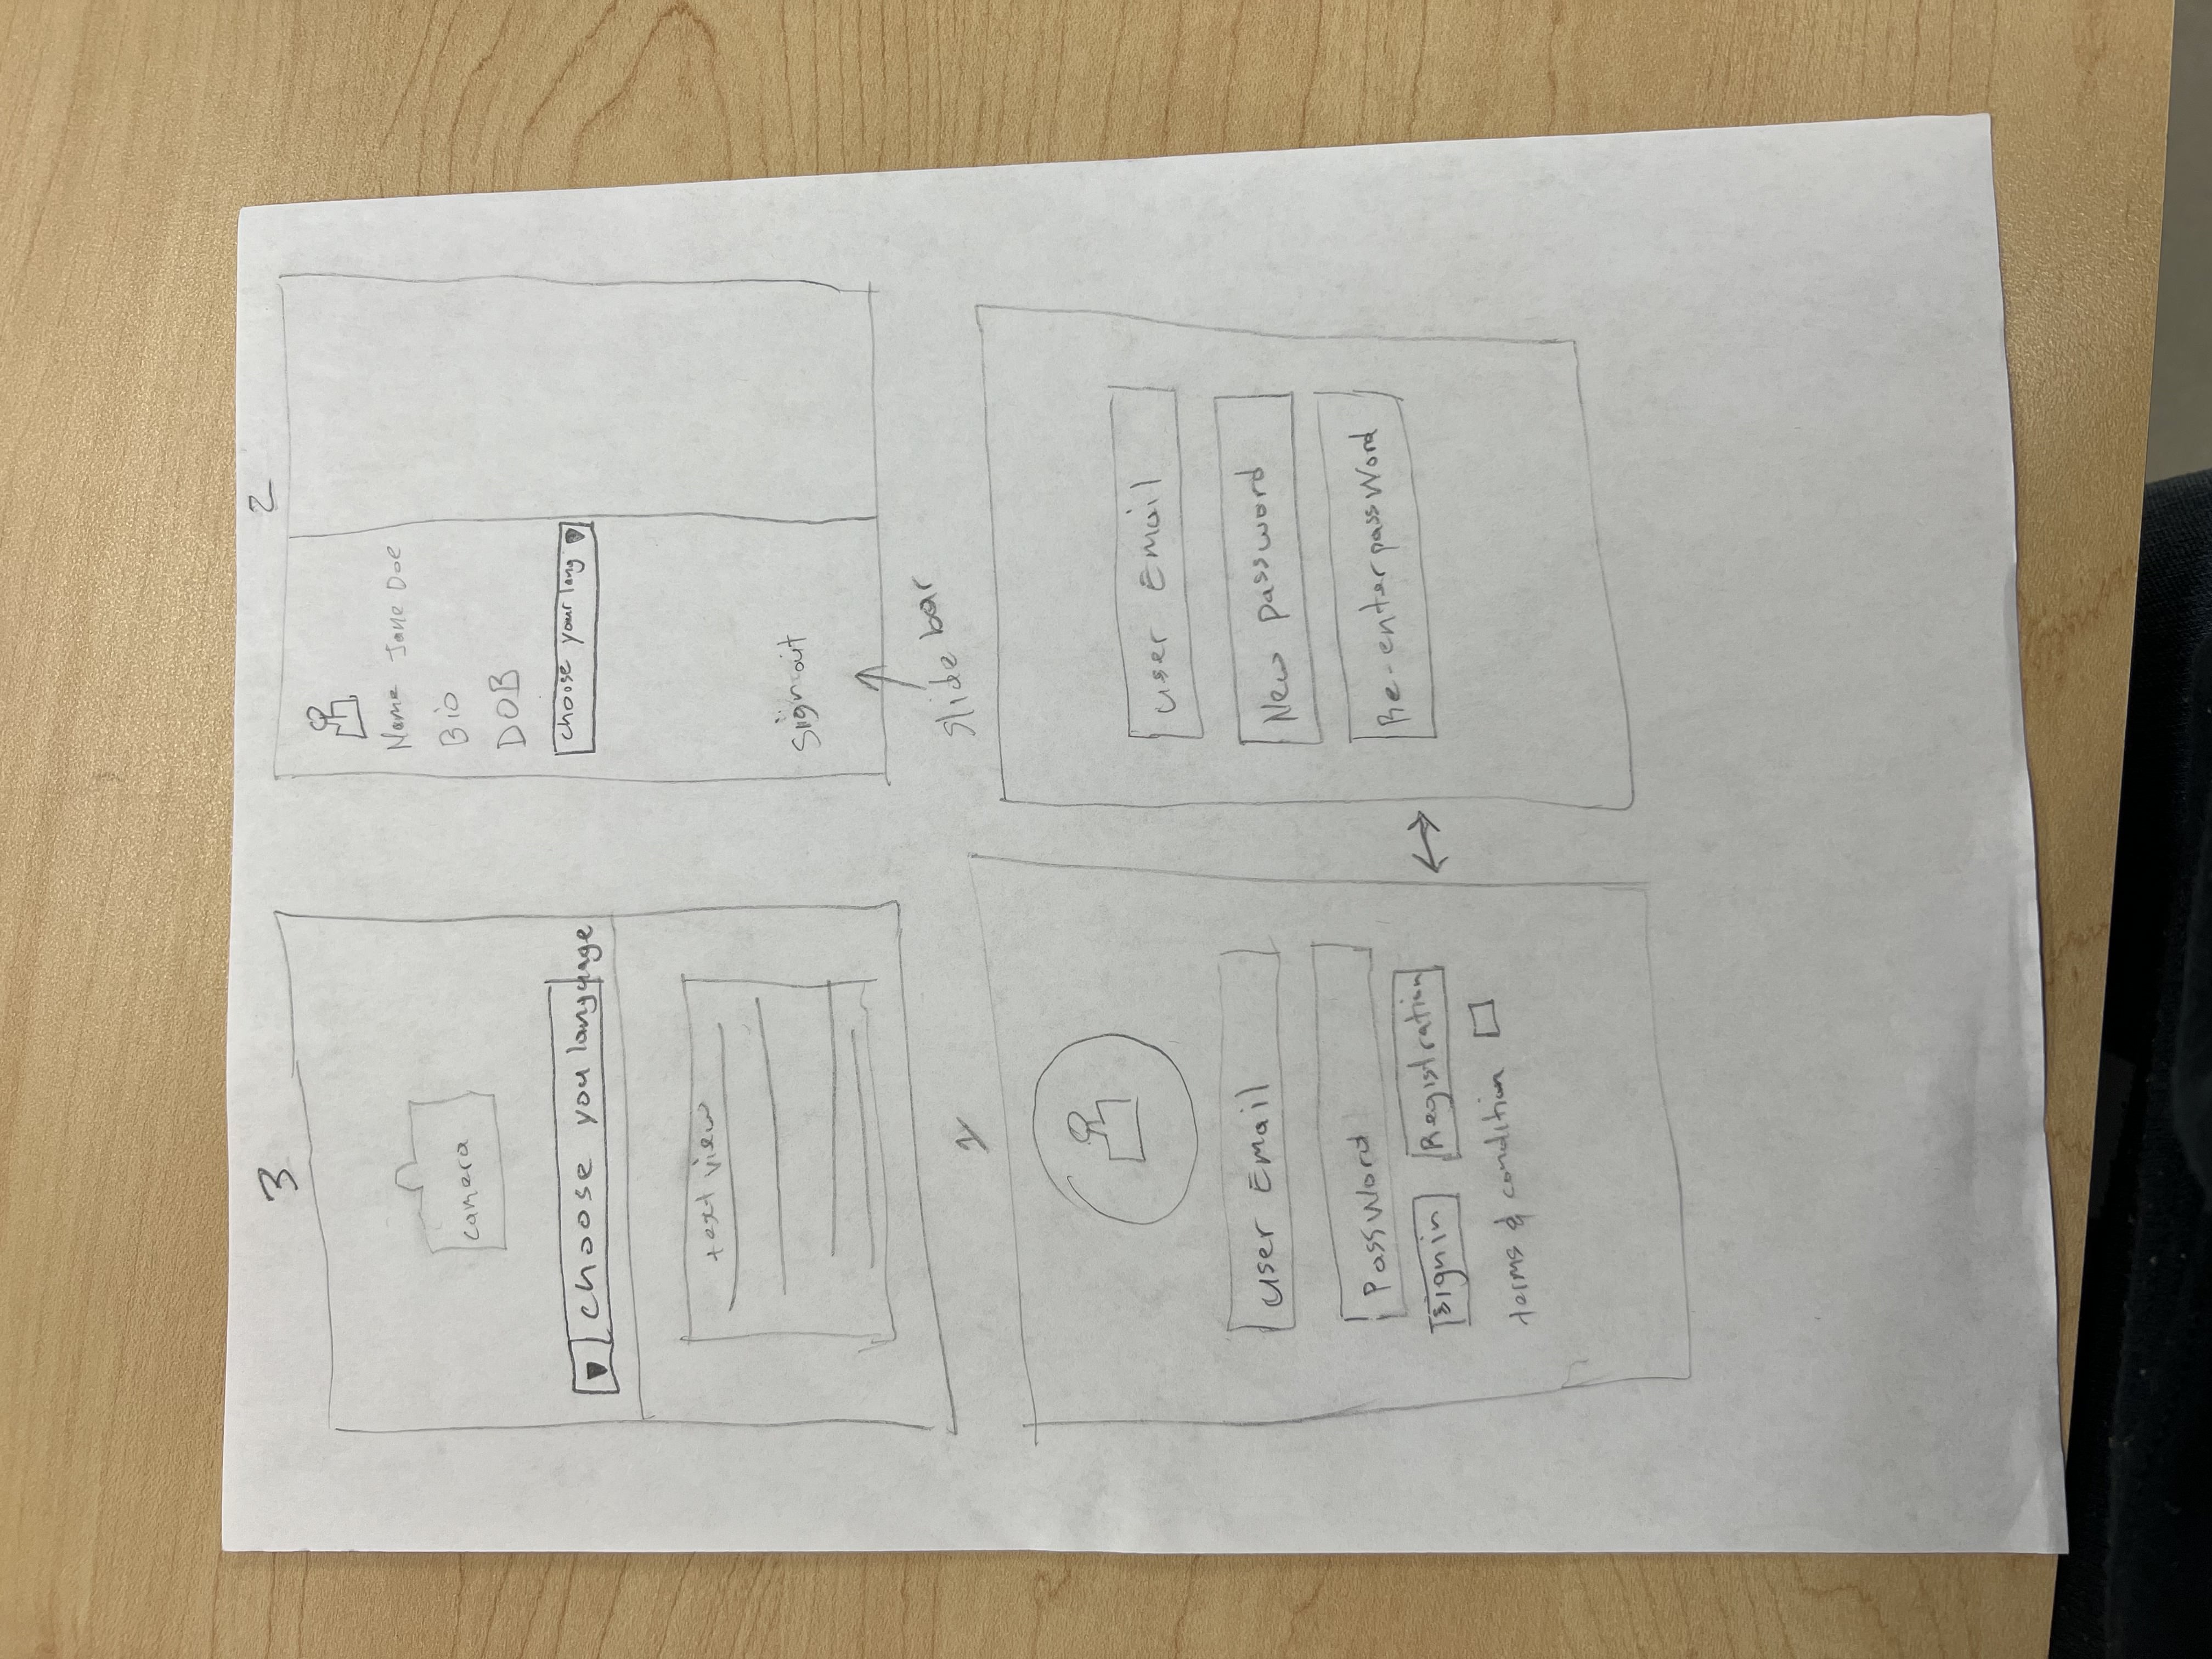 3
camera
choose you language
text view
2
Name Jane Doe
Bio
DOB
choose your lang
Sign out
Slide bar
1
user Email
Password
sign in
Registration
terms & condition
user Email
New password
Re-enter password